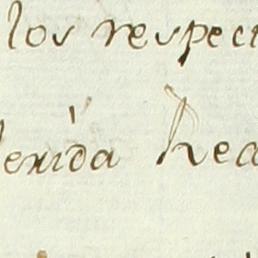 los respect
erida Rea